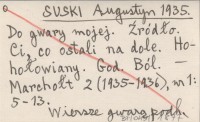 SUSKI Augustyn 1935.
Do gwary mojej. Źródło.
Ci, co ostali na dole. Ho-
hołowiany. God. Ból. —
Marchołt 2 (1935-1936), nr 1:
5-13.
Wiersze gwarą podh.